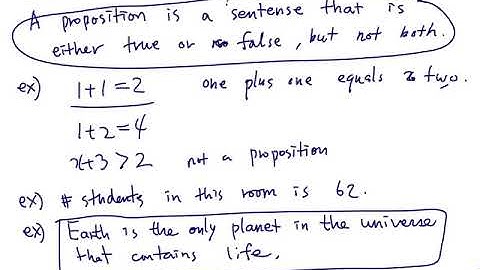 A proposition is a sentence that is
either true or false, but not both.
ex) 1+1=2 one plus one equals two.
1+2=4
x+3>2 not a proposition
ex) # students in this room is 62.
ex) Earth is the only planet in the universe
that contains life.